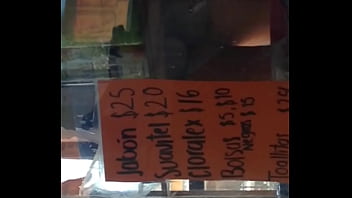 Jabón $25
Suavitel $20
Cloralex $16
Bolsas $5, $10
Negras $15
Toallitas